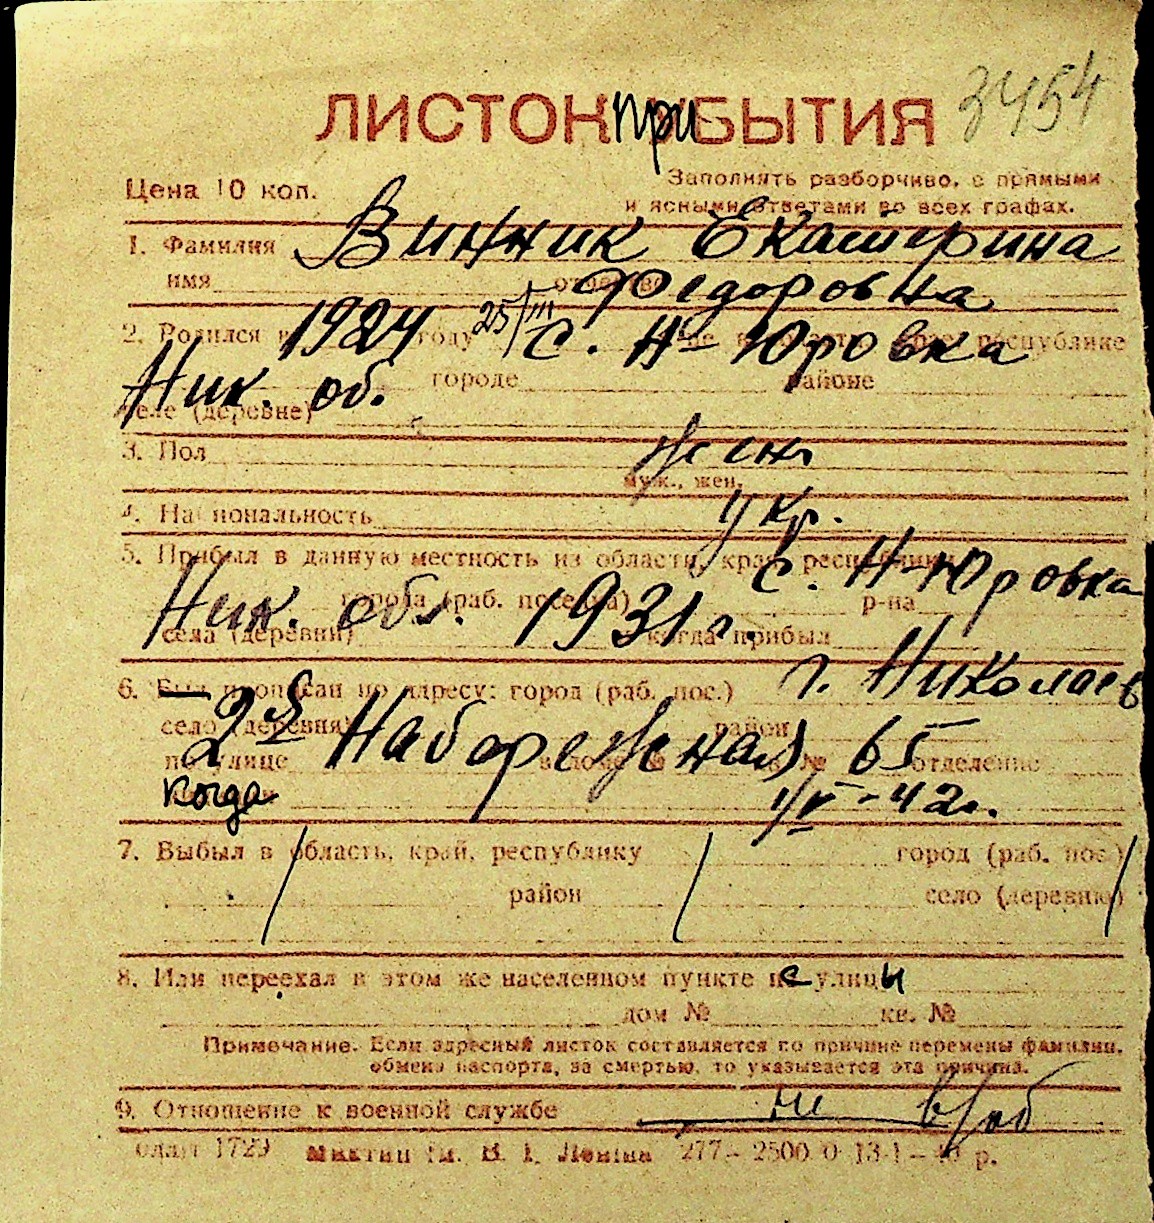 3454
ЛИСТОК ПРИБЫТИЯ
Цена 10 коп.
Заполнять разборчиво, с прямыми
и ясными ответами во всех графах.
1. Фамилия Винник Екатерина
имя отчество Федоровна
2. Родился в 1924 году 25/III с. Н-Юровка республике
Ник. об. городе районе
селе (деревне)
3. Пол жен.
муж., жен.
4. Национальность укр.
5. Прибыл в данную местность из области, края, республики с. Н-Юровка
Ник. обл. города (раб. поселка) р-на
села (деревни) 1931 г. когда прибыл
6. Был прописан по адресу: город (раб. пос.) г. Николаев
село (деревня) район
2я Набережная 65
по улице в доме № кв. № отделение
когда 1/V-42г.
7. Выбыл в область, край, республику город (раб. пос.)
район село (деревню)
8. Или переехал в этом же населенном пункте с улицы
дом № кв. №
Примечание. Если адресный листок составляется по причине перемены фамилии,
обмена паспорта, за смертью, то указывается эта причина.
9. Отношение к военной службе не в/об
1729 им. В. І. Леніна 277 – 2500 0 13-1 – р.